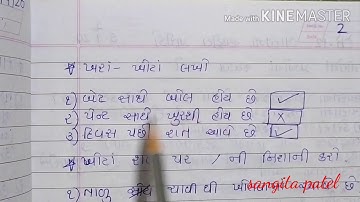 Made with KINEMASTER
2
* ખરાં - ખોટાં લખો
૧) બેટ સાથે બોલ હોય છે ✓
૨) પેન્ટ સાથે ખુરશી હોય છે ×
૩) દિવસ પછી રાત આવે છે ✓
* ખોટાં પર / ની નિશાની કરો.
૧) તાળુ ચાવી થી છે
sangita patel